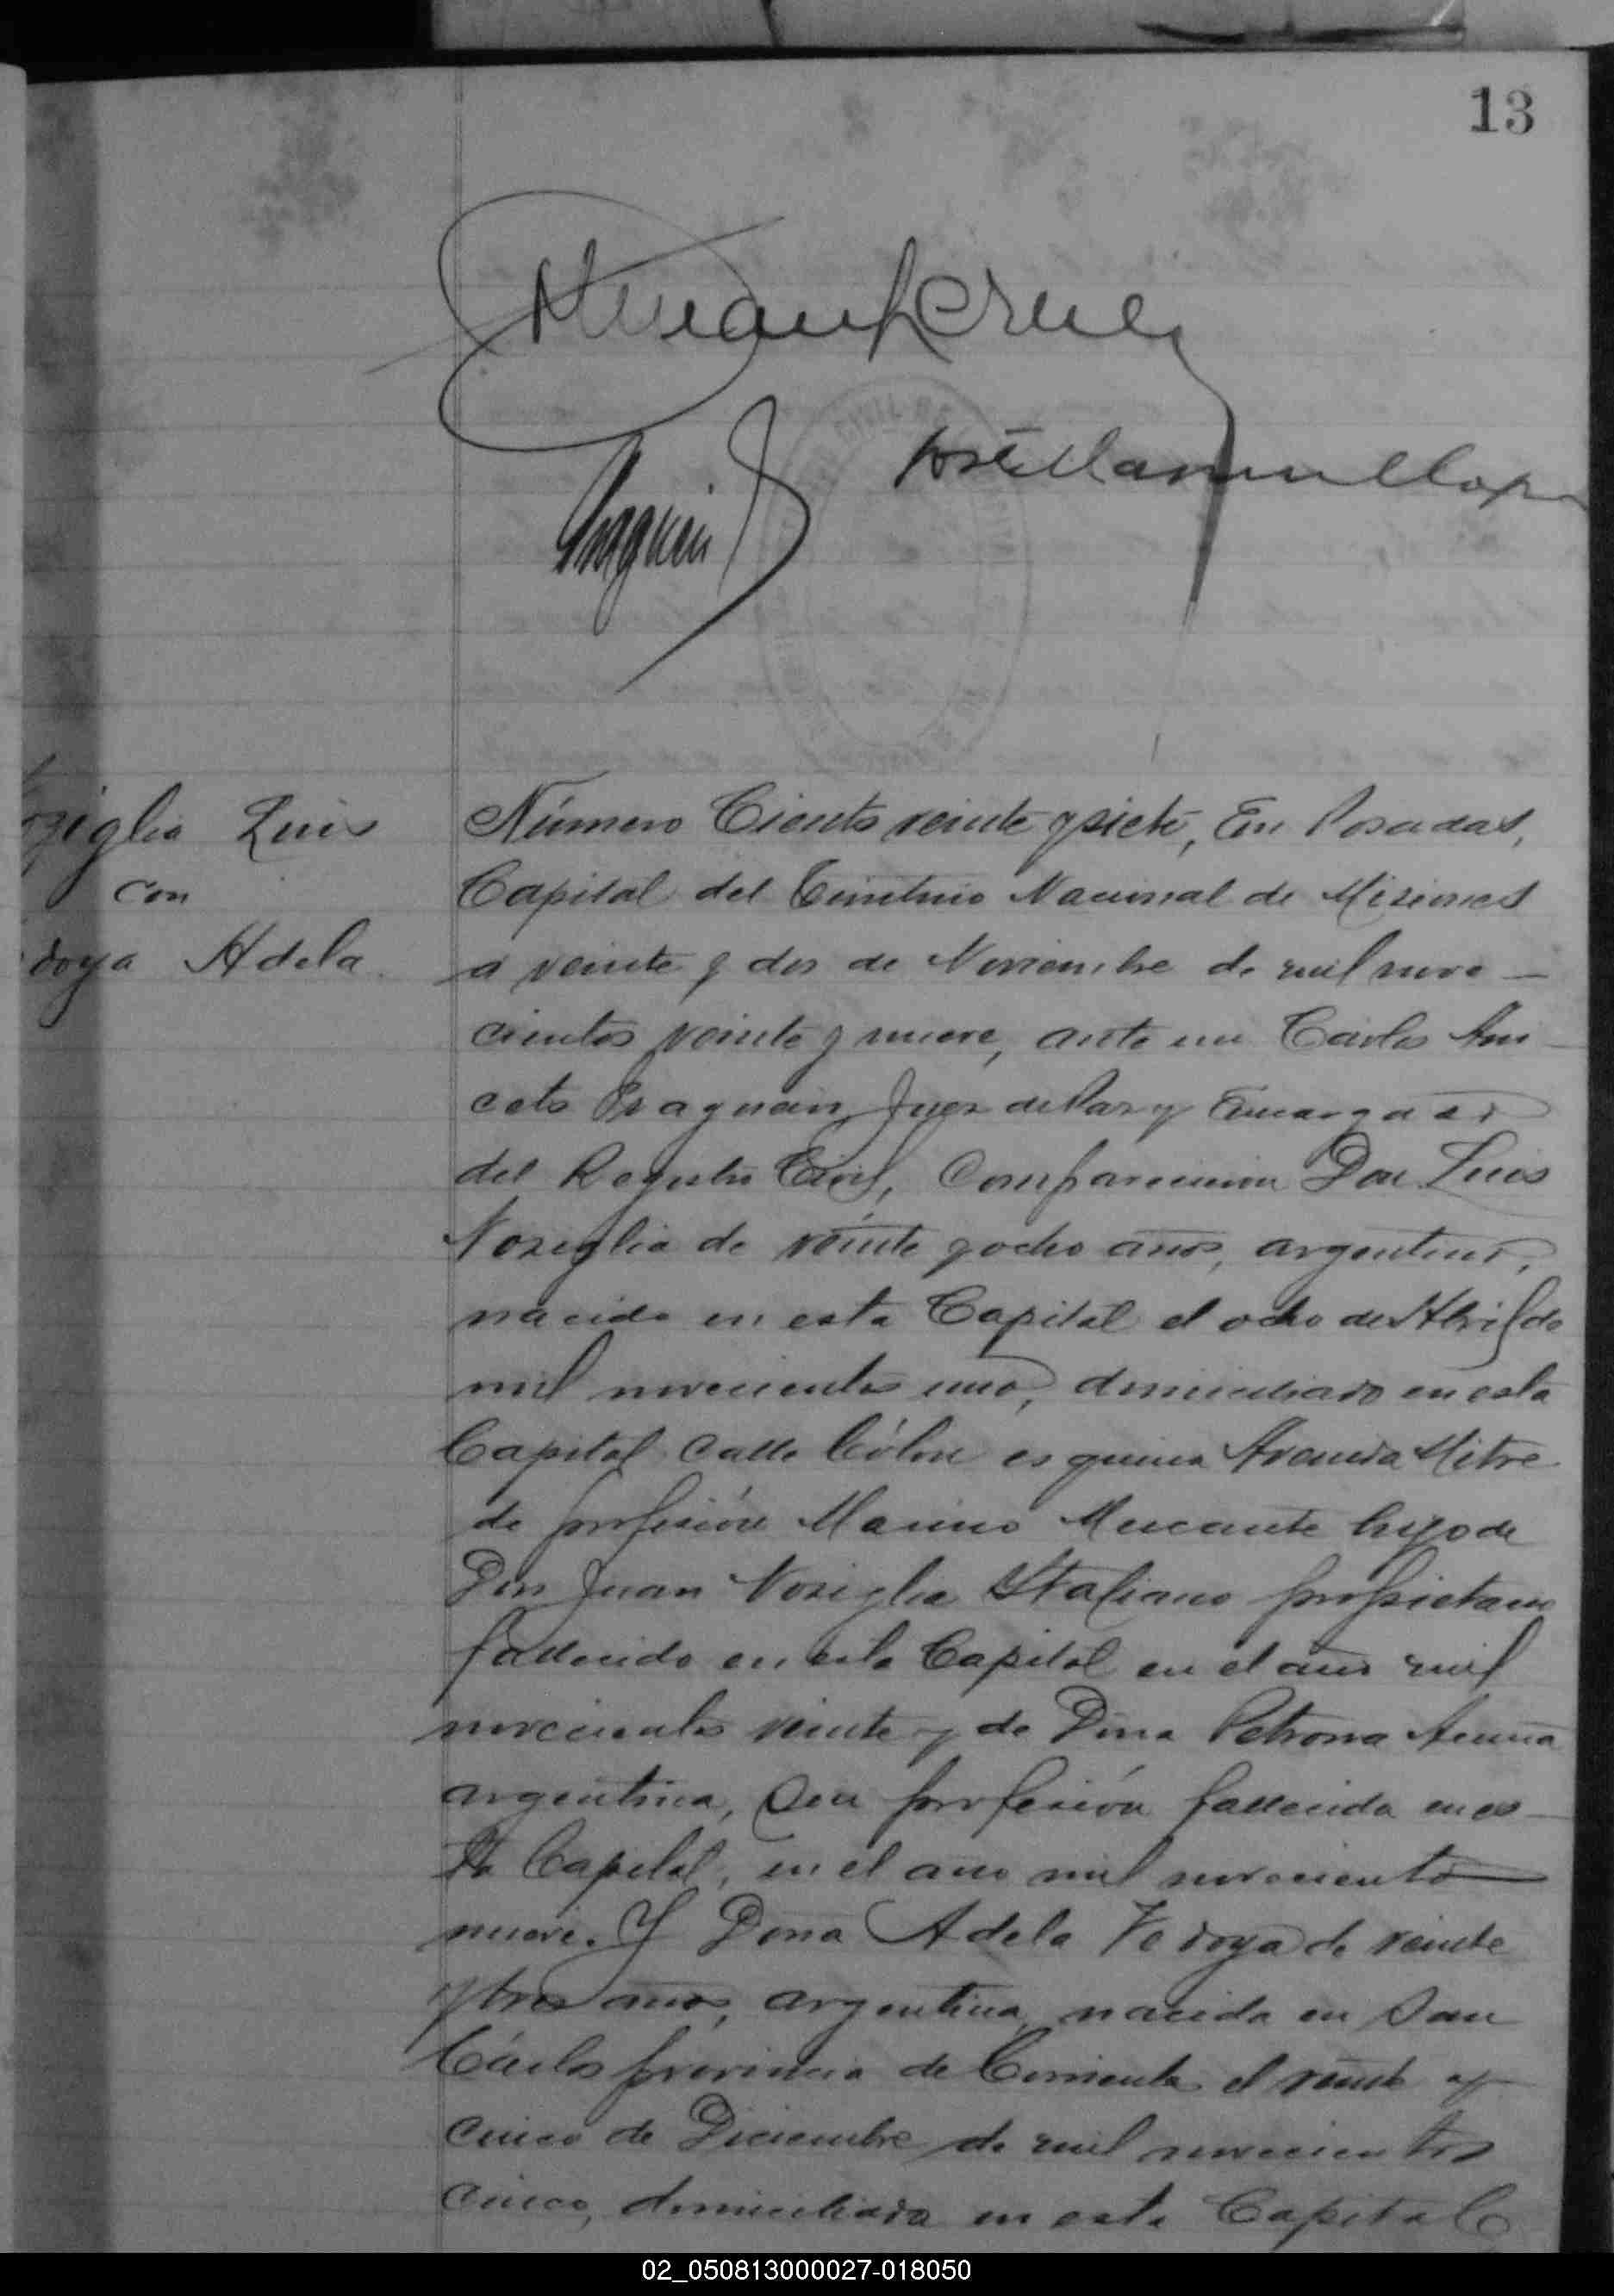 13
José Manuel
Noziglia Luis
con
doya Adela
Número Ciento veinte y siete, En Posadas,
Capital del Territorio Nacional de Misiones
a veinte y dos de Noviembre de mil nove-
cientos veinte y nueve, ante mi Carlos Ani-
ceto Yraguain, Juez de Paz y Encargado
del Registro Civil, Comparecieron Don Luis
Noziglia de veinte y ocho años, argentino,
nacido en esta Capital el ocho de Abril de
mil novecientos uno, domiciliado en esta
Capital calle Cólon esquina Avenida Mitre
de profesión Marino Mercante hijo de
Don Juan Noziglia Italiano propietario
fallecido en esta Capital en el año mil
novecientos veinte y de Dona Petrona Acuña
argentina, sin profesión fallecida en es-
ta Capital, en el año mil novecientos
nueve. Y Dona Adela Vedoya de veinte
y tres años, argentina, nacida en San
Cárlos provincia de Corrientes el veinte y
cinco de Diciembre de mil novecientos
cinco, domiciliada en esta Capital C
02_050813000027-018050